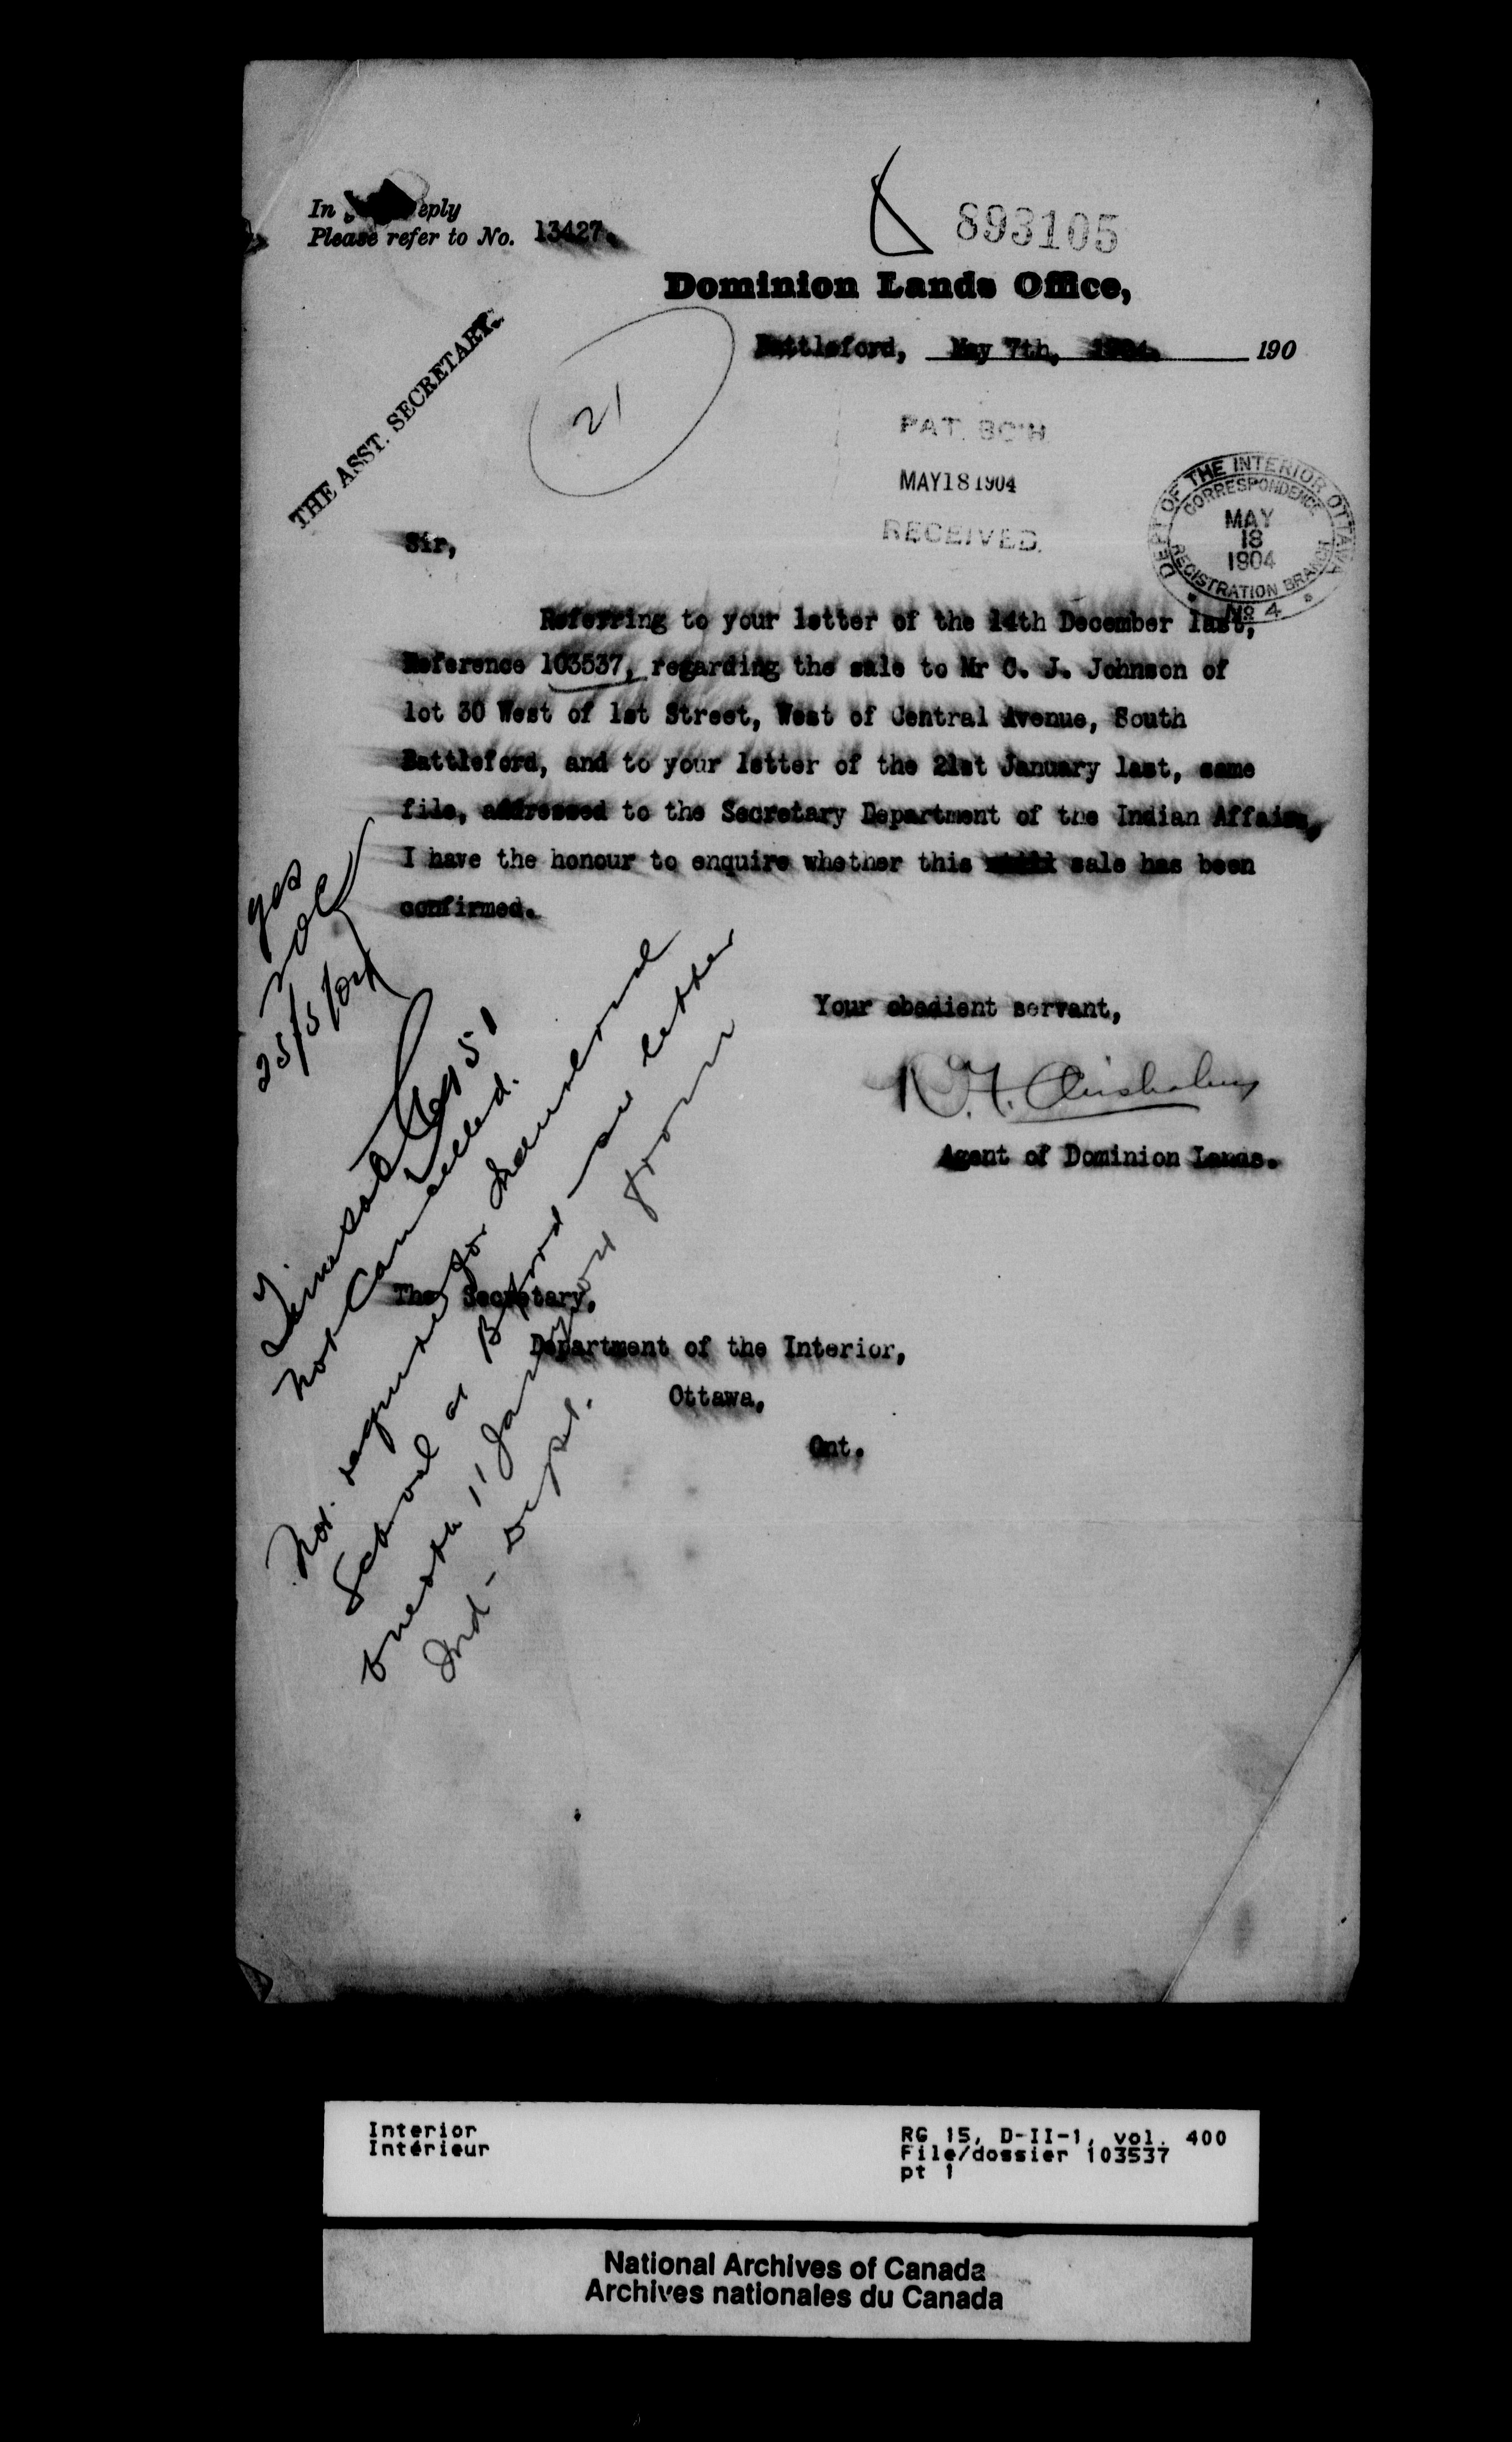 In reply
Please refer to No. 13427.
893105
Dominion Lands Office,
Battleford, May 7th, 1904. 190
THE ASST. SECRETARY.
21
PAT. BCH.
MAY 18 1904
RECEIVED.
DEPT OF THE INTERIOR OTTAWA
CORRESPONDENCE
MAY
18
1904
REGISTRATION BRANCH
No 4
Sir,
Referring to your letter of the 14th December last,
Reference 103537, regarding the sale to Mr C. J. Johnson of
lot 30 West of 1st Street, West of Central Avenue, South
Battleford, and to your letter of the 21st January last, same
file, addressed to the Secretary Department of the Indian Affairs,
I have the honour to enquire whether this sale has been
confirmed.
yes
25/5/04
Your obedient servant,
Agent of Dominion Lands.
Not Cancelled.
Not required for Industrial
School at B'ford — see letter
one 11 Jany 04 from
Ind- Dept.
The Secretary,
Department of the Interior,
Ottawa,
Ont.
Interior
Intérieur
RG 15, D-II-1, vol. 400
File/dossier 103537
pt 1
National Archives of Canada
Archives nationales du Canada